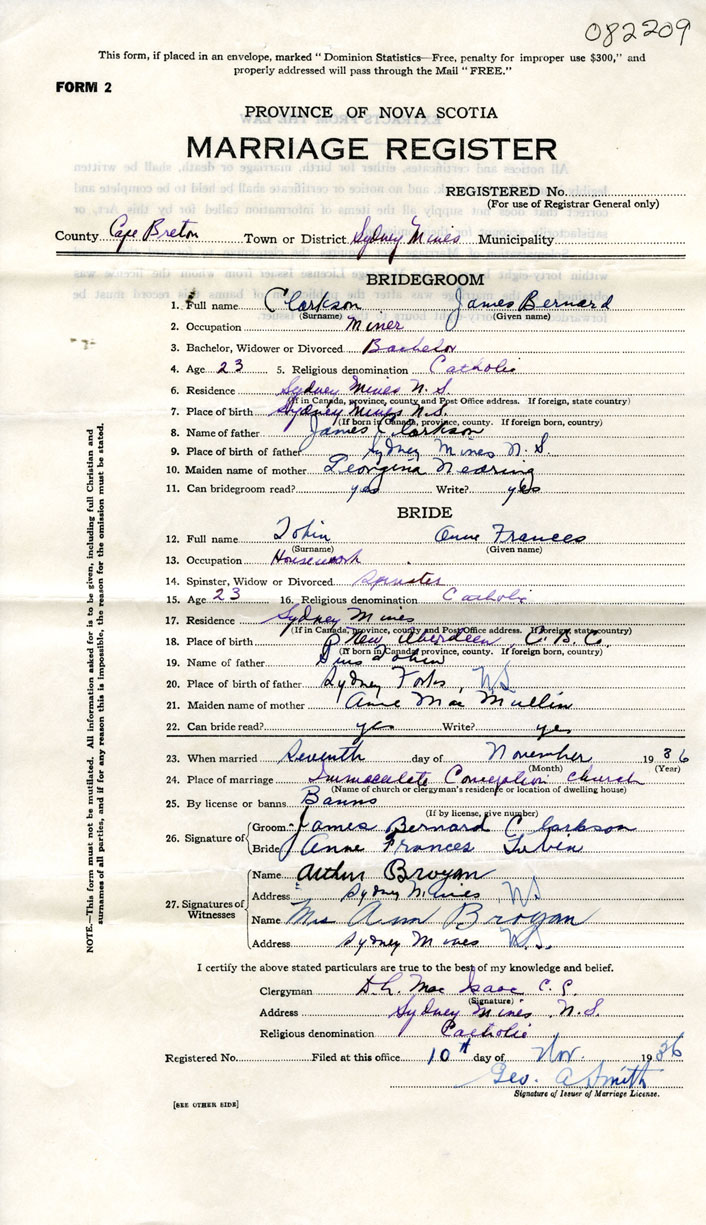 082209
This form, if placed in an envelope, marked "Dominion Statistics—Free, penalty for improper use $300," and
properly addressed will pass through the Mail "FREE."
FORM 2
PROVINCE OF NOVA SCOTIA
MARRIAGE REGISTER
REGISTERED No.
(For use of Registrar General only)
County Cape Breton Town or District Sydney Mines Municipality
BRIDEGROOM
1. Full name Clarkson James Bernard
(Surname) (Given name)
2. Occupation Miner
3. Bachelor, Widower or Divorced Bachelor
4. Age 23 5. Religious denomination Catholic
6. Residence Sydney Mines N.S.
(If in Canada, province, county and Post Office address. If foreign, state country)
7. Place of birth Sydney Mines N.S.
(If born in Canada, province, county. If foreign born, country)
8. Name of father James Clarkson
9. Place of birth of father Sydney Mines N.S.
10. Maiden name of mother Georgina Nearing
11. Can bridegroom read? yes Write? yes
BRIDE
12. Full name Tobin Anne Frances
(Surname) (Given name)
13. Occupation Housework
14. Spinster, Widow or Divorced Spinster
15. Age 23 16. Religious denomination Catholic
17. Residence Sydney Mines
(If in Canada, province, county and Post Office address. If foreign, state country)
18. Place of birth New Aberdeen, C.B. Co.
(If born in Canada, province, county. If foreign born, country)
19. Name of father Tobin
20. Place of birth of father Sydney Forks, NS
21. Maiden name of mother Anne MacMullin
22. Can bride read? yes Write? yes
23. When married Seventh day of November 1936
(Month) (Year)
24. Place of marriage Immaculate Conception Church
(Name of church or clergyman's residence or location of dwelling house)
25. By license or banns Banns
(If by license, give number)
26. Signature of Groom James Bernard Clarkson
Bride Anne Frances Tobin
27. Signatures of Witnesses
Name Arthur Brogan
Address Sydney Mines NS
Name Mrs Ann Brogan
Address Sydney Mines N.S.
I certify the above stated particulars are true to the best of my knowledge and belief.
Clergyman D.L. MacIsaac C.C.
(Signature)
Address Sydney Mines N.S.
Religious denomination Catholic
Registered No. Filed at this office 10th day of Nov. 1936
Geo. A Smith
Signature of Issuer of Marriage License.
[SEE OTHER SIDE]
NOTE.—This form must not be mutilated. All information asked for is to be given, including full Christian and
surnames of all parties, and if for any reason this is impossible, the reason for the omission must be stated.